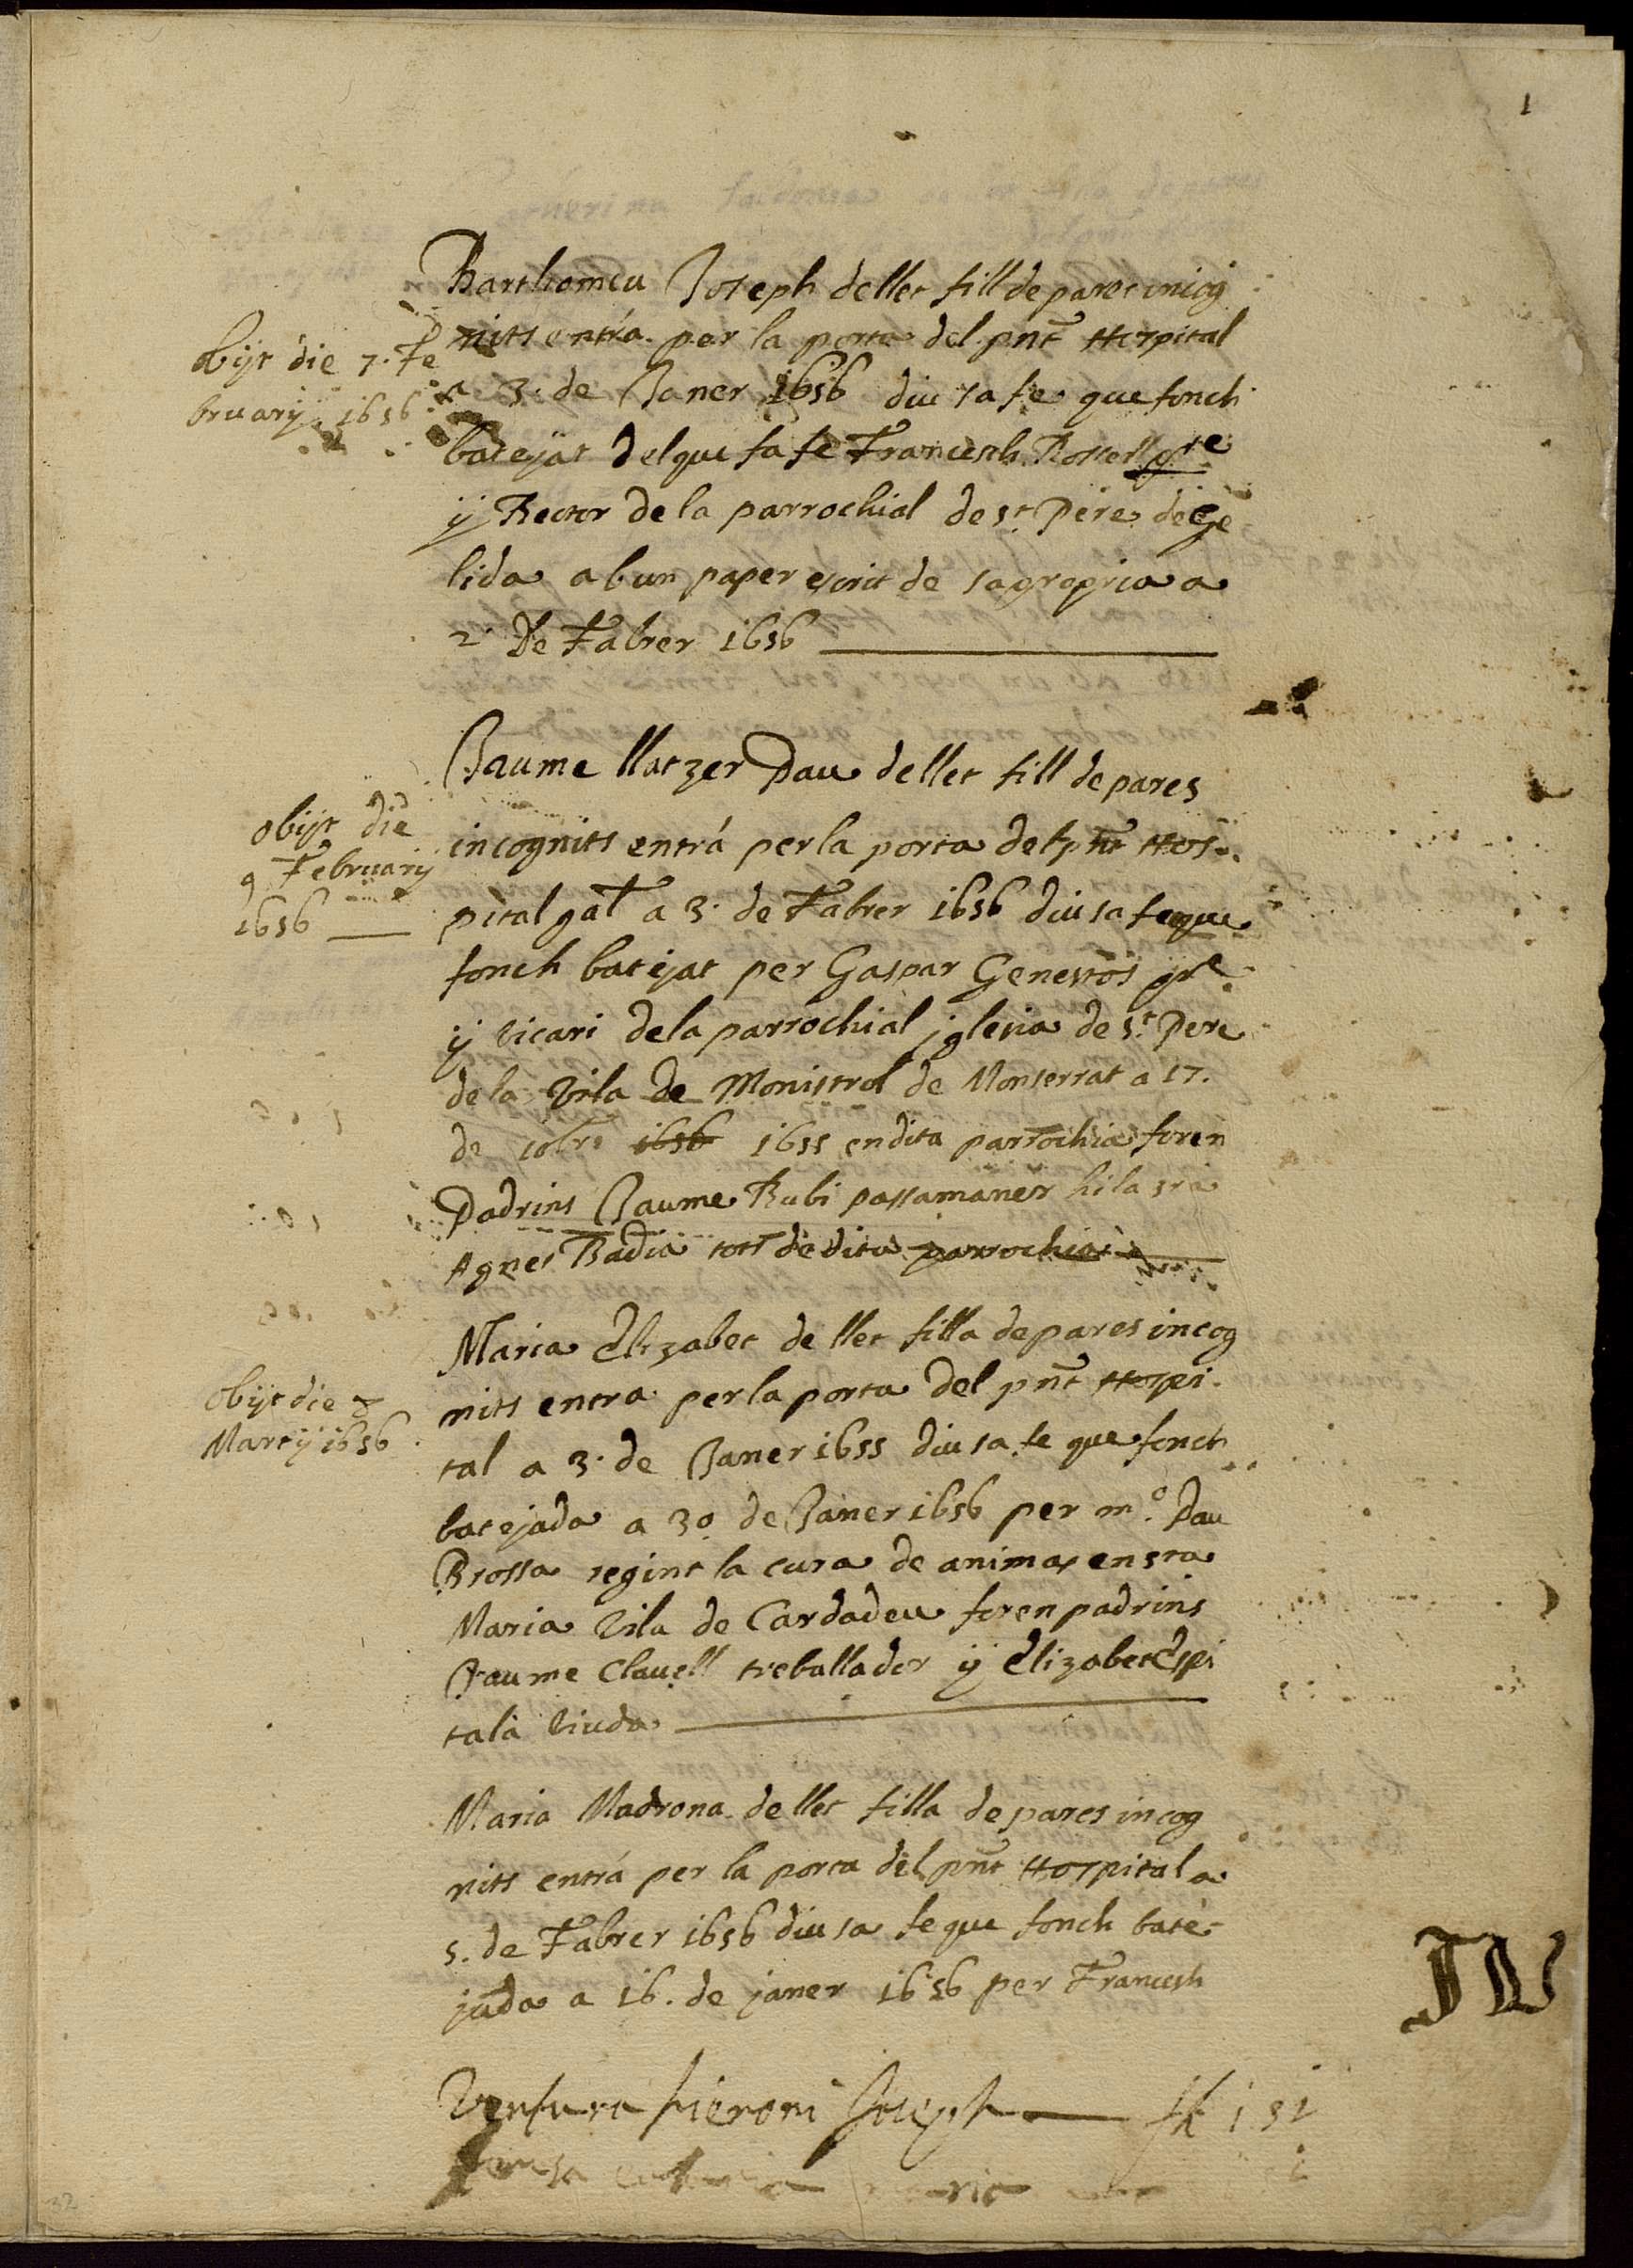 1
Barthomeu Joseph de llet fill de pares incog
nits entrá per la porta del pnt Hospital
a 3. de Janer 1656 diu sa fe que fonch
batejat del que fa fe Francesch Rossell pre
y Rector de la parrochial de st Pere de Ge
lida ab un paper escrit de sa propria a
2. De Fabrer 1656
obijt die 7. Fe
bruarij 1656
Jaume llatzer Pau de llet fill de pares
incognits entrá per la porta del pnt Hos-
pital gal a 3. de Fabrer 1656 diu sa fe que
fonch batejat per Gaspar Genestos pre
y vicari de la parrochial jglesia de st Pere
de la vila de Monistrol de Monserrat a 17.
de 10bre 1656 1655 en dita parrochia foren
Padrins Jaume Rubi passamaner hi la sra
Agnes Badia tots de dita parrochia
obijt die
9 Februarij
1656
Maria Elizabet de llet filla de pares incog
nits entra per la porta del pnt Hospi-
tal a 3. de Janer 1655 diu sa fe que fonch
batejada a 30 de Janer 1656 per mo. Pau
Brossa regint la cura de animas en sta
Maria vila de Cardadeu foren padrins
Jaume Clavell treballador y Elizabet Espi
talà viuda
obijt die
Martij 1656
Maria Madrona de llet filla de pares incog
nits entrá per la porta del pnt Hospital a
5. de Fabrer 1656 diu sa fe que fonch bate-
jada a 16. de janer 1656 per Francesch
Ventura hieroni Joseph
32